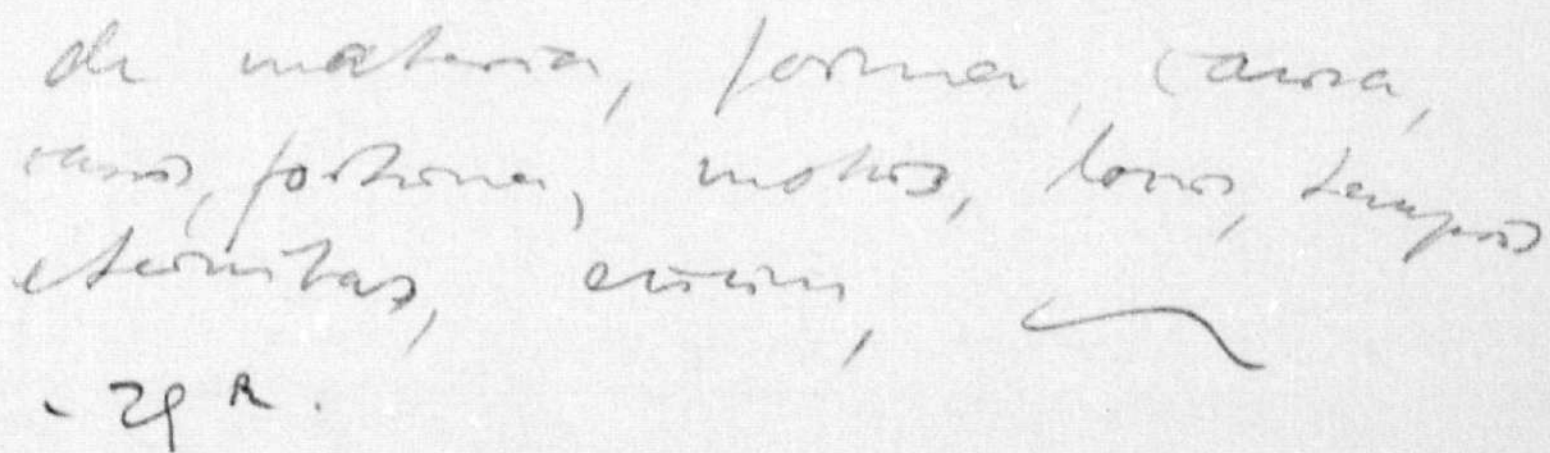 de materia, forma, causa,
casus, fortuna, motus, locus, tempus
eternitas,
- 29 R.